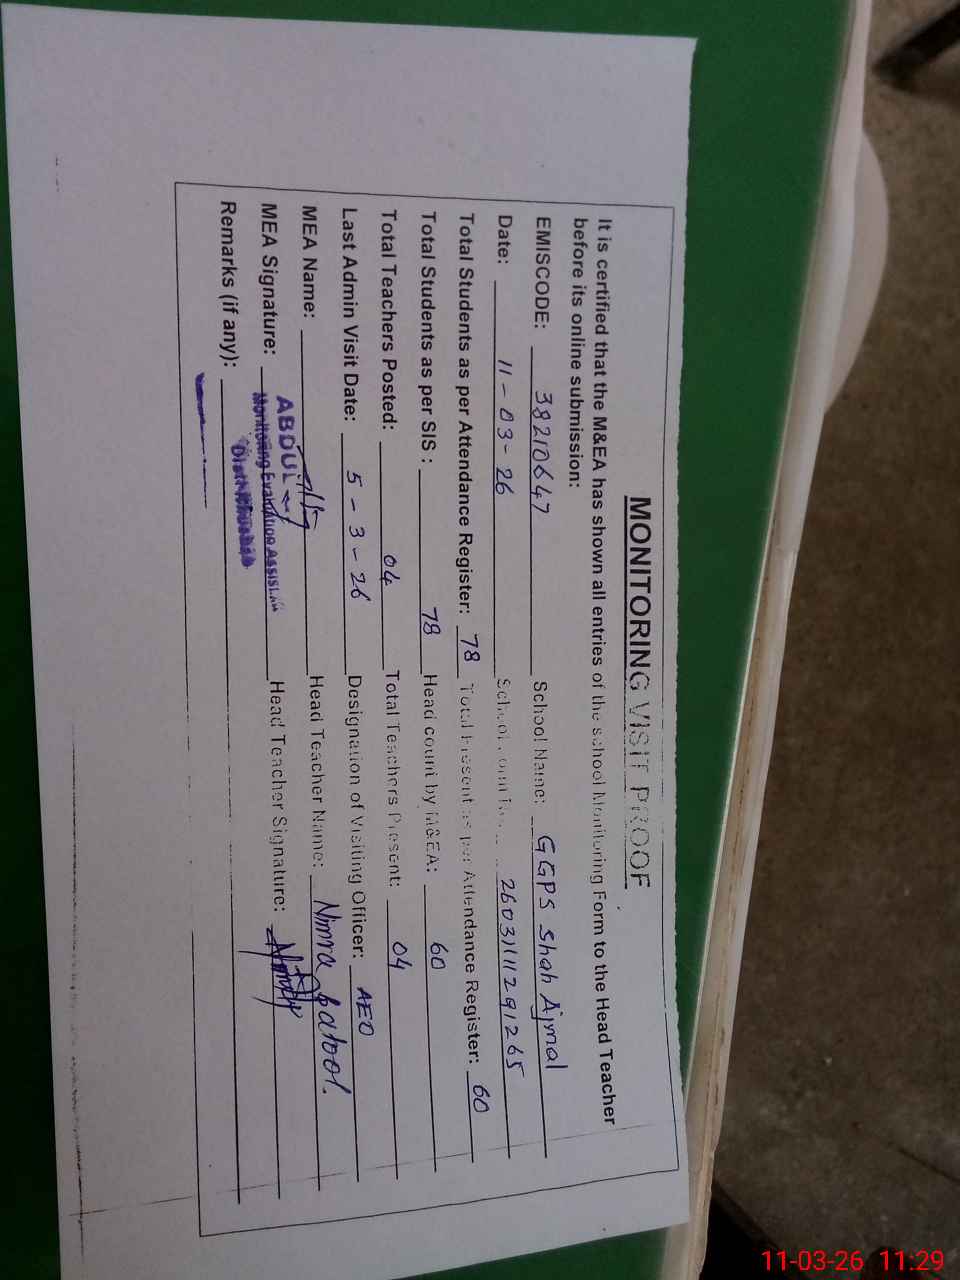 MONITORING VISIT PROOF
It is certified that the M&EA has shown all entries of the school Monitoring Form to the Head Teacher
before its online submission:
EMISCODE: 38210647 School Name: GGPS Shah Ajmal
Date: 11-03-26 School 260311129 1265
Total Students as per Attendance Register: 78 Total Present as per Attendance Register: 60
Total Students as per SIS : 78 Head count by M&EA: 60
Total Teachers Posted: 04 Total Teachers Present: 04
Last Admin Visit Date: 5-3-26 Designation of Visiting Officer: AEO
MEA Name: Head Teacher Name: Nimra batool.
MEA Signature: ABDUL Head Teacher Signature:
Monitoring Evaluation Assistant
Remarks (if any):
11-03-26 11:29